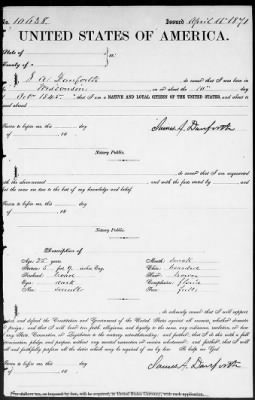 No. 10638 Issued April 15 1871
UNITED STATES OF AMERICA.
State of
County of ss:
I, J. A. Danforth do swear that I was born in
Wisconsin on or about the 10th day
of Oct. 1845; that I am a NATIVE AND LOYAL CITIZEN OF THE UNITED STATES, and about to
travel abroad
Sworn to before me, this day
of 18 James A. Danforth
Notary Public.
I, do swear that I am acquainted
with the above-named and with the facts stated by
and that
the same are true to the best of my knowledge and belief.
Sworn to before me, this day
of 18
Notary Public.
Description of
Age: 25 years Mouth: small
Stature: 5 feet 9 inches, Eng. Chin: bearded
Forehead: Hair: brown
Eyes: dark Complexion:
Nose: small Face: full
I, do solemnly swear that I will support,
protect, and defend the Constitution and Government of the United States against all enemies, whether domestic
or foreign; and that I will bear true faith, allegiance, and loyalty to the same, any ordinance, resolution, or law
of any State, Convention, or Legislature to the contrary notwithstanding; and further, that I do this with a full
determination, pledge, and purpose, without any mental reservation or evasion whatsoever; and further, that I will
well and faithfully perform all the duties which may be required of me by law. So help me God.
Sworn to before me, this day
of 18 James A. Danforth